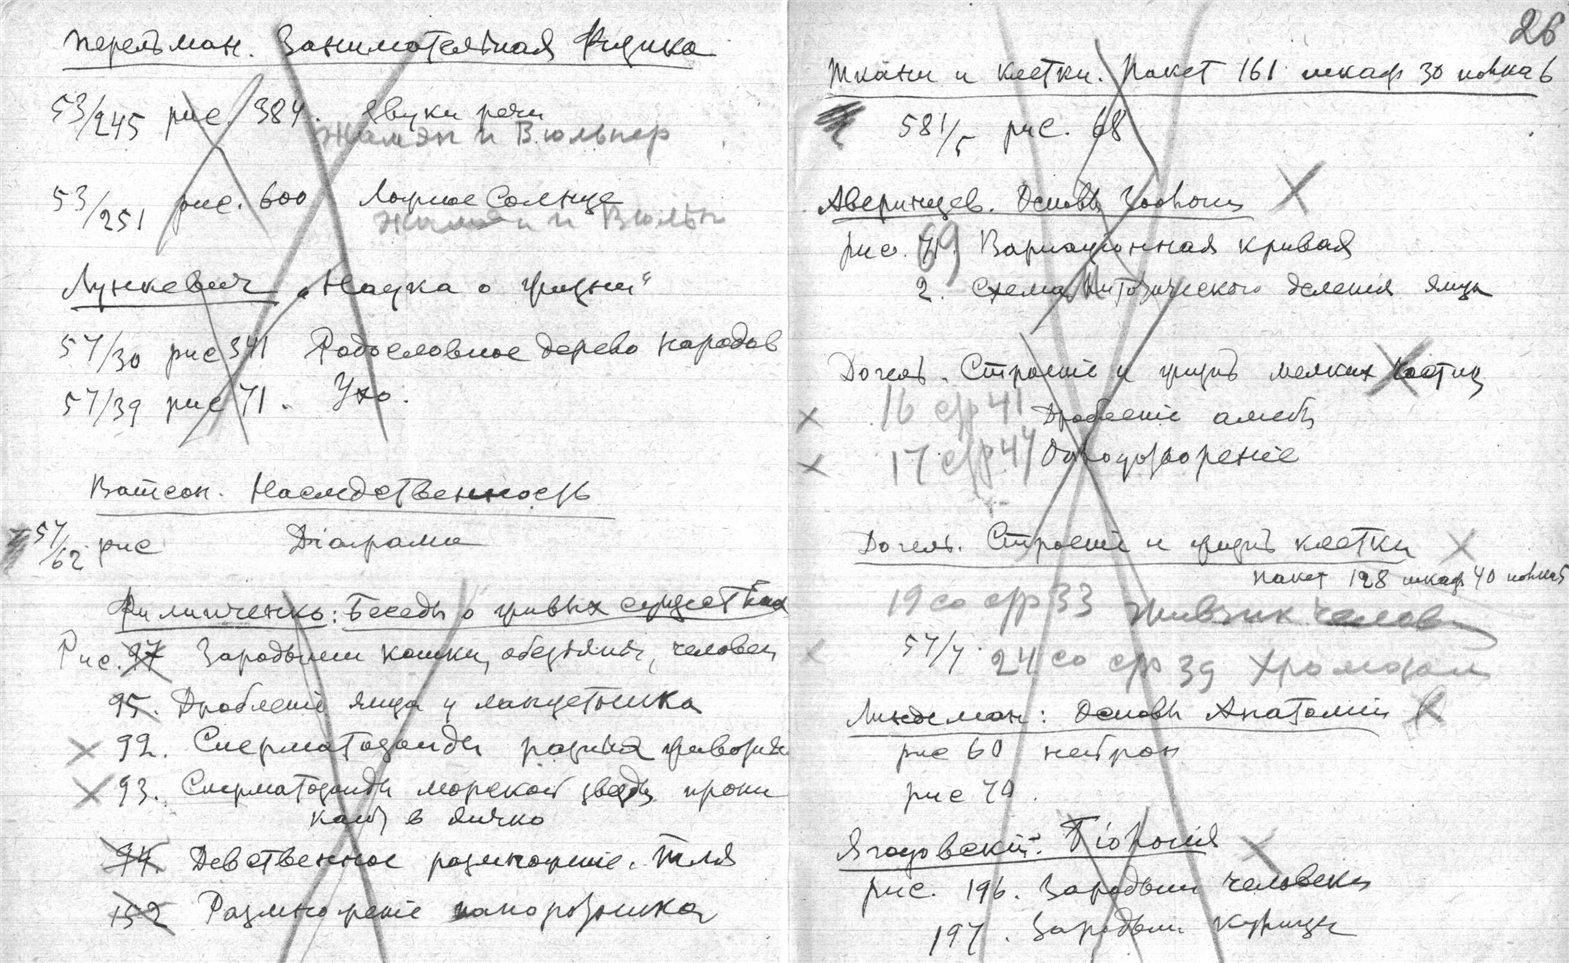 Перельман. Занимательная Физика
53/245 рис. 384. Звуки речи
Жамэн и Вюльнер
53/251 рис. 600 Ложное Солнце
Жамэн и Вюльн
Лункевич „Наука о жизни"
57/30 рис 341 Родословное дерево народов
57/39 рис 71. Ухо.
Ватсон. Наследственность
57/62 рис Діаграма
Филипченко: Беседы о живых существах
Рис. 97 Зародыши кошки, обезьяны, человека
95. Дробленіе яйца у ланцетника
92. Сперматозоиды разных животных
93. Сперматозоиды морской звезды прони
кают в яичко
94. Девственное размножение. Тля
152 Размноженіе папоротника
26
Ткани и клетки. Пакет 161 шкаф 30 полка 6
581/5 рис. 68
Аверинцев. Основы Зоологии
рис. 69 Вариационная кривая
2. Схема митотического деления яйца
Догель. Строеніе и жизнь мелких
16 стр 41 Дробленіе амебы
17 стр 47 Оплодотвореніе
Догель. Строеніе и жизнь клетки
пакет 128 шкаф 40 полка 5
19 со стр 33 Живчик человек
57/7 24 со стр 39 Хромозом
Линдеман: Основы Анатоміи
рис 60 нейрон
рис 70
Ягодовский: Біологія
рис. 196. Зародыш человека
197. Зародыш курицы